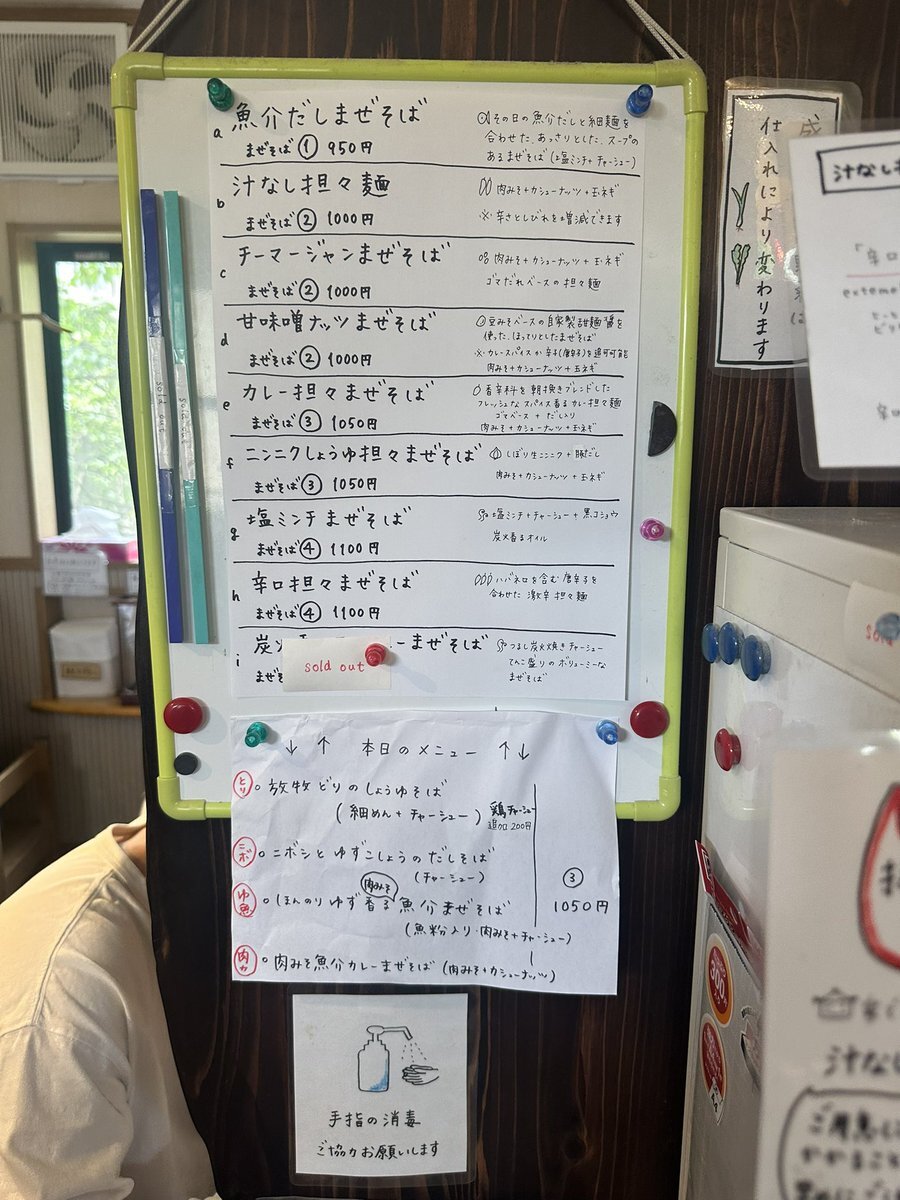 a 魚介だしまぜそば
まぜそば ① 950円
その日の魚介だしと細麺を
合わせた、あっさりとした、スープの
あるまぜそば (塩ミンチ+チャーシュー)
b 汁なし担々麺
まぜそば ② 1000円
肉みそ+カシューナッツ+玉ネギ
※辛さとしびれを増減できます
c チーマージャンまぜそば
まぜそば ② 1000円
肉みそ+カシューナッツ+玉ネギ
ゴマだれベースの担々麺
d 甘味噌ナッツまぜそば
まぜそば ② 1000円
豆みそベースの自家製甜麺醤を
使った、ぽってりとしたまぜそば
※カレースパイスか辛子(唐辛子)を追可可能
肉みそ+カシューナッツ+玉ネギ
e カレー担々まぜそば
まぜそば ③ 1050円
香辛料を朝挽きブレンドした
フレッシュなスパイス香るカレー担々麺
ゴマベース + だし入り
肉みそ+カシューナッツ+玉ネギ
f ニンニクしょうゆ担々まぜそば
まぜそば ③ 1050円
しぼり生ニンニク + 豚だし
肉みそ+カシューナッツ+玉ネギ
g 塩ミンチまぜそば
まぜそば ④ 1100円
塩ミンチ+チャーシュー+黒コショウ
炭火香るオイル
h 辛口担々まぜそば
まぜそば ④ 1100円
ハバネロを含む唐辛子を
合わせた 激辛 担々麺
i 炭火 ーまぜそば
まぜ
sold out
つるし炭火焼きチャーシュー
てんこ盛りのボリューミーな
まぜそば
sold out
sold out
↓ ↑ 本日のメニュー ↑ ↓
とり 放牧どりのしょうゆそば
(細めん+チャーシュー)
鶏チャーシュー
追加200円
ニボ ニボシとゆずこしょうのだしそば
(チャーシュー)
③
1050円
肉みそ
ゆ魚 ほんのりゆず香る魚介まぜそば
(魚粉入り・肉みそ+チャーシュー)
肉カ 肉みそ魚介カレーまぜそば (肉みそ+カシューナッツ)
手指の消毒
ご協力お願いします
仕入れにより変わります
汁なし
「辛口
sold
300
汁な
ご用意に
かかること